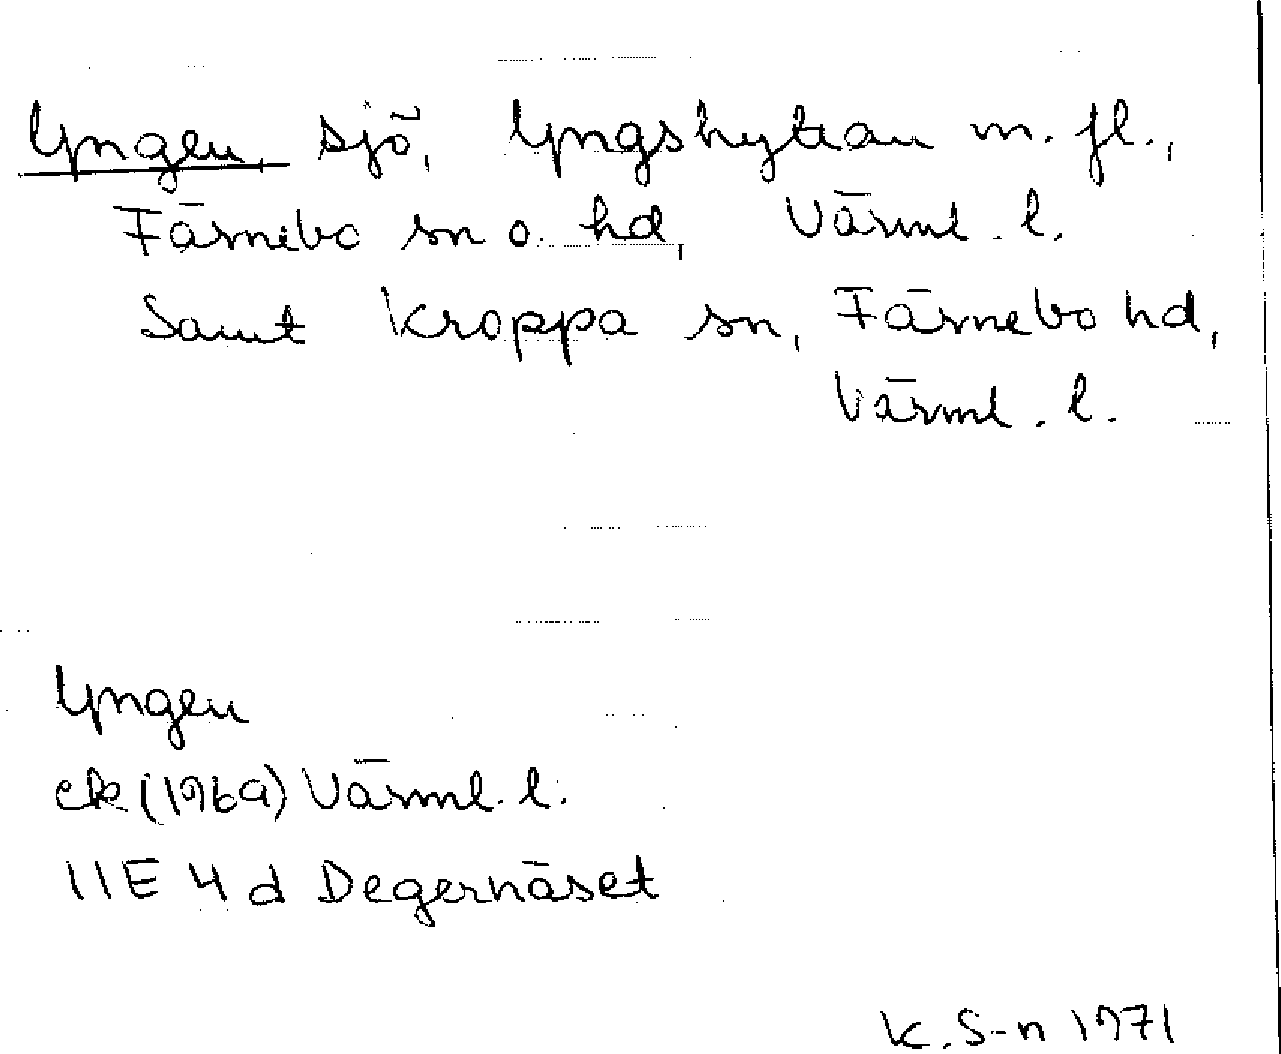 Yngen, sjö, Yngshyttan m. fl.,
Färnebo sn o. hd, Värml. l.
Samt Kroppa sn, Färnebo hd,
Värml. l.
Yngen
ek (1969) Värml. l.
11E 4 d Degernäset
K. S-n 1971